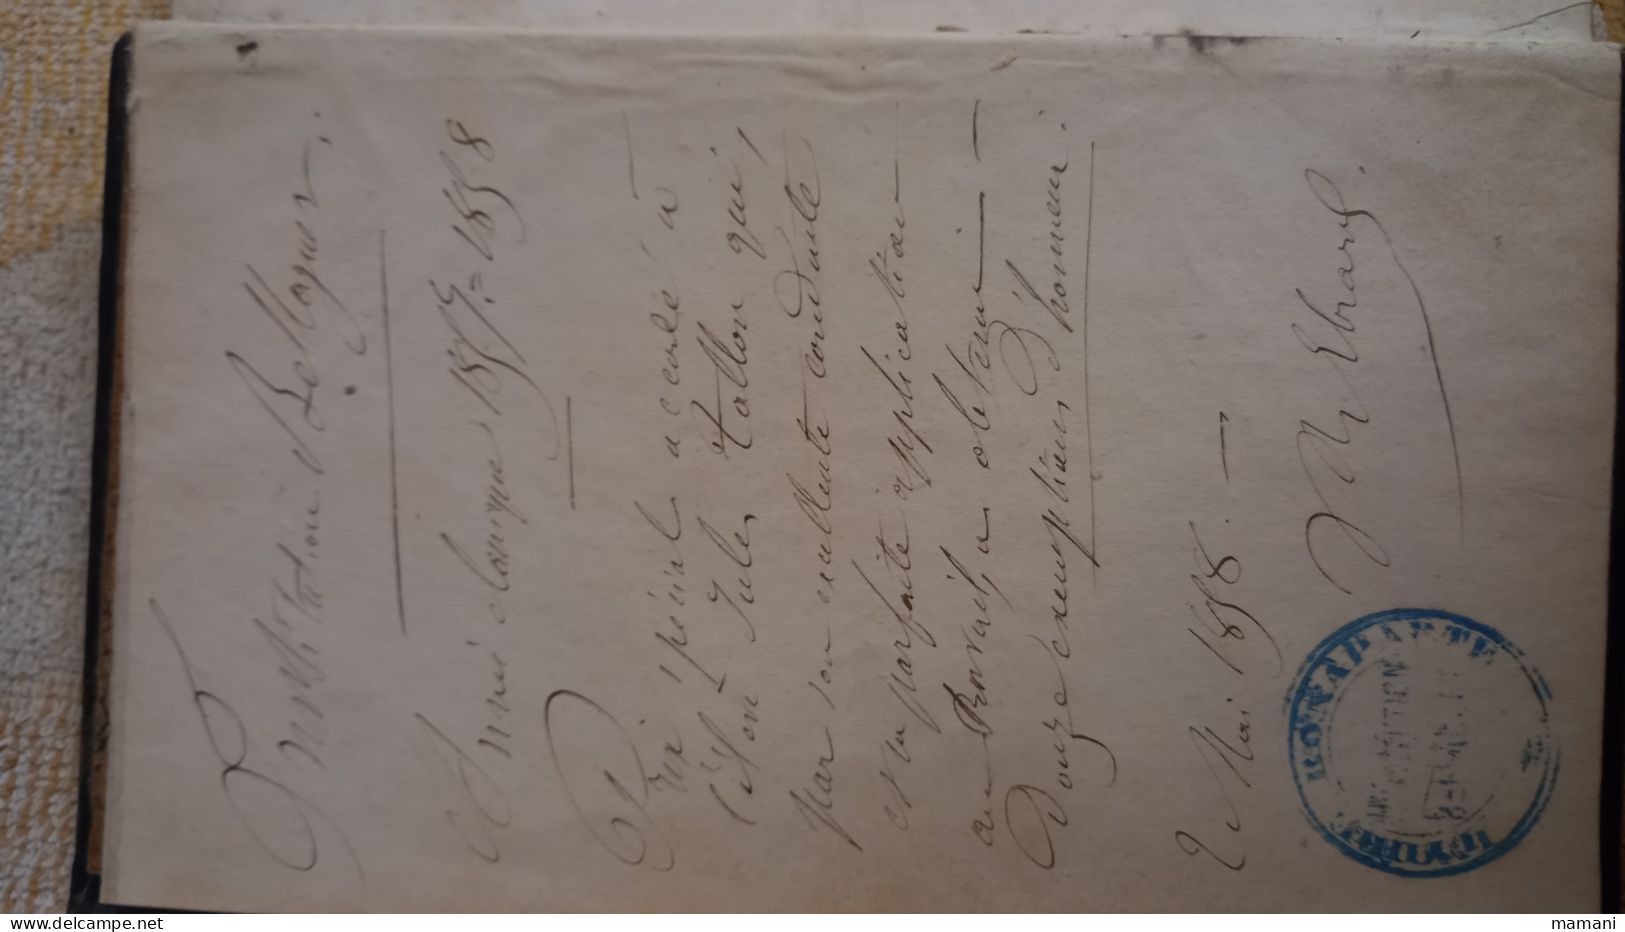 Institution Bellaguet.
Année classique 1857=1858
Prix spécial accordé à
l'élève Jules Tallon qui,
par son excellente conduite
et sa parfaite application
au travail, a obtenu
Douze exemptions d'honneur.
2 Mai 1858.
Ebrard.
mamani